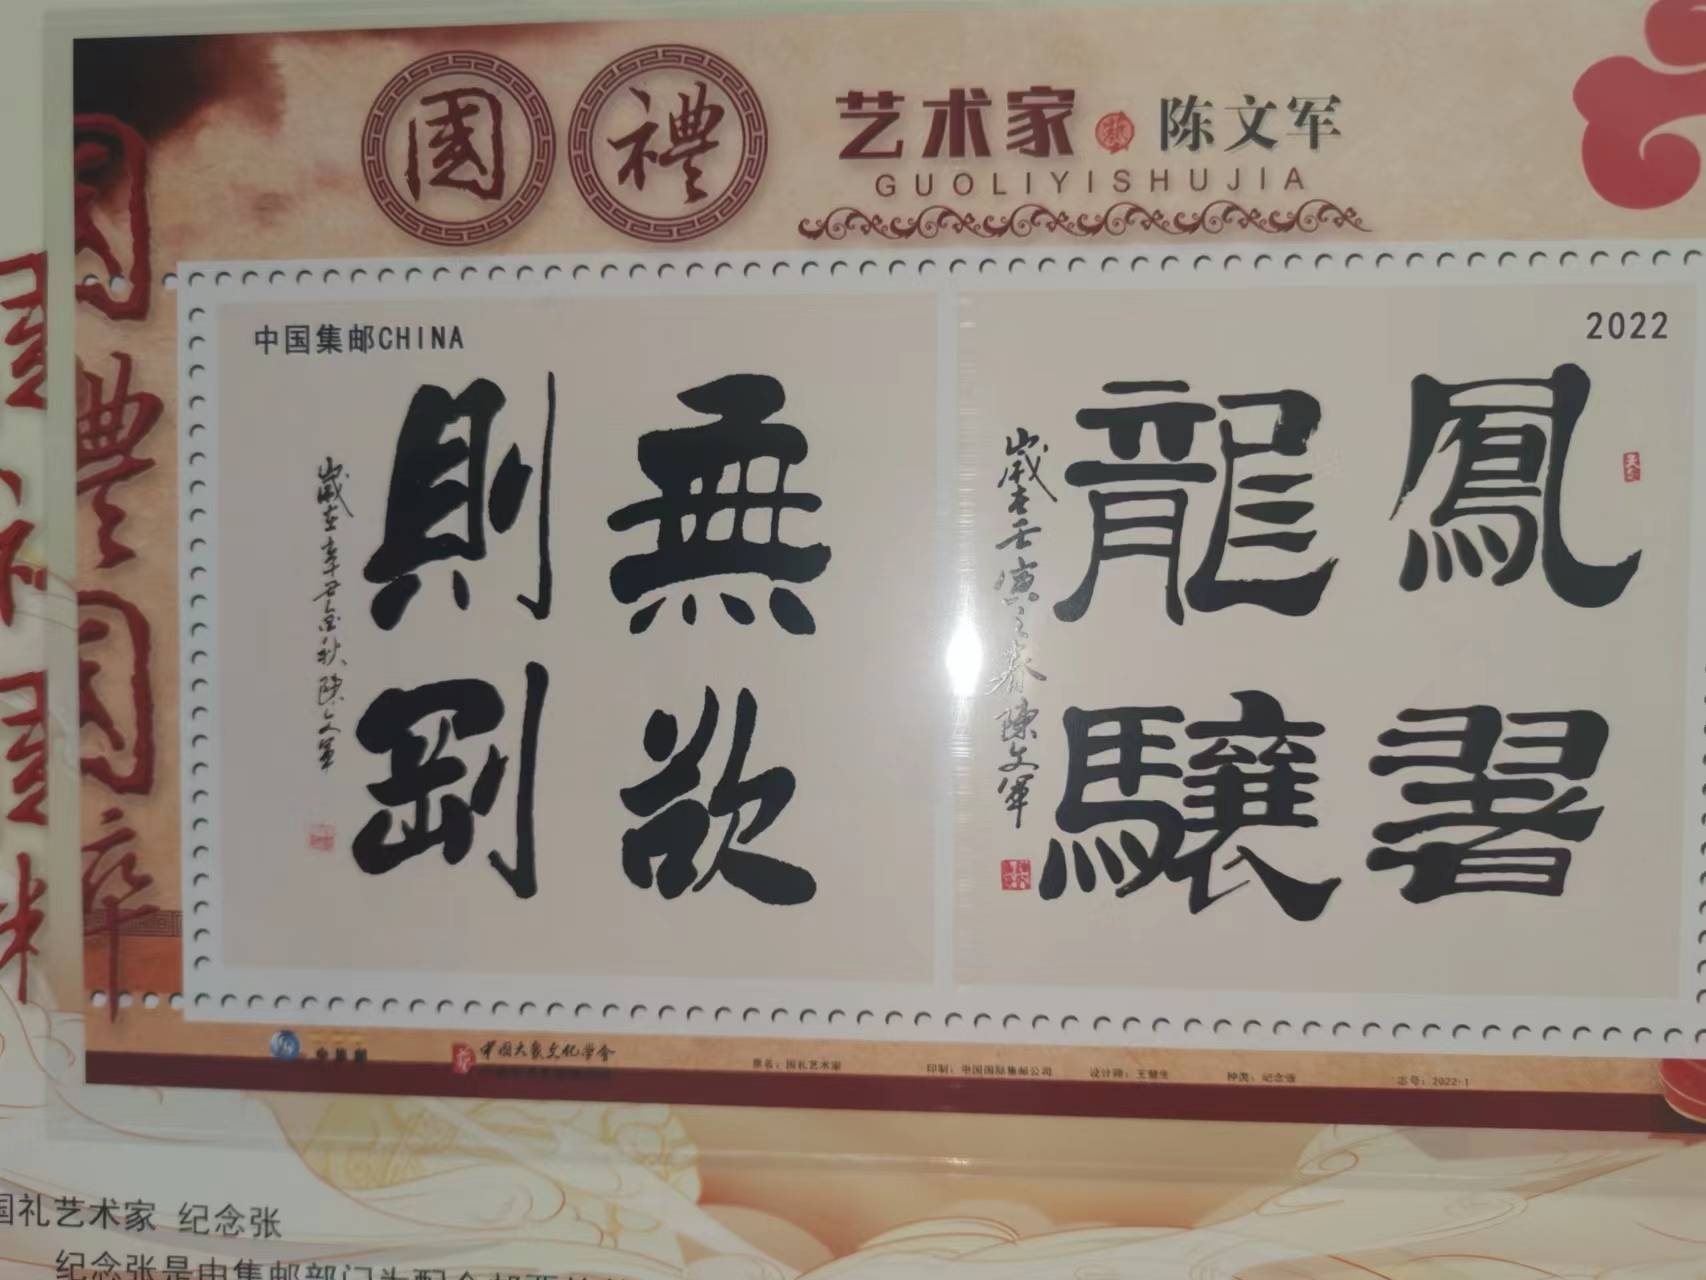 國禮 艺术家 陈文军
GUOLIYISHUJIA
國禮國粹
中国集邮CHINA
2022
無欲
則剛
歲在辛丑金秋陳文軍
鳳翥
龍驤
歲在壬寅之春陳文軍
中国大众文化学会
票名：国礼艺术家
印制：中国国际集邮公司
种类：纪念张
志号：2022-1
国礼艺术家 纪念张
纪念张是由集邮部门为配合邮票